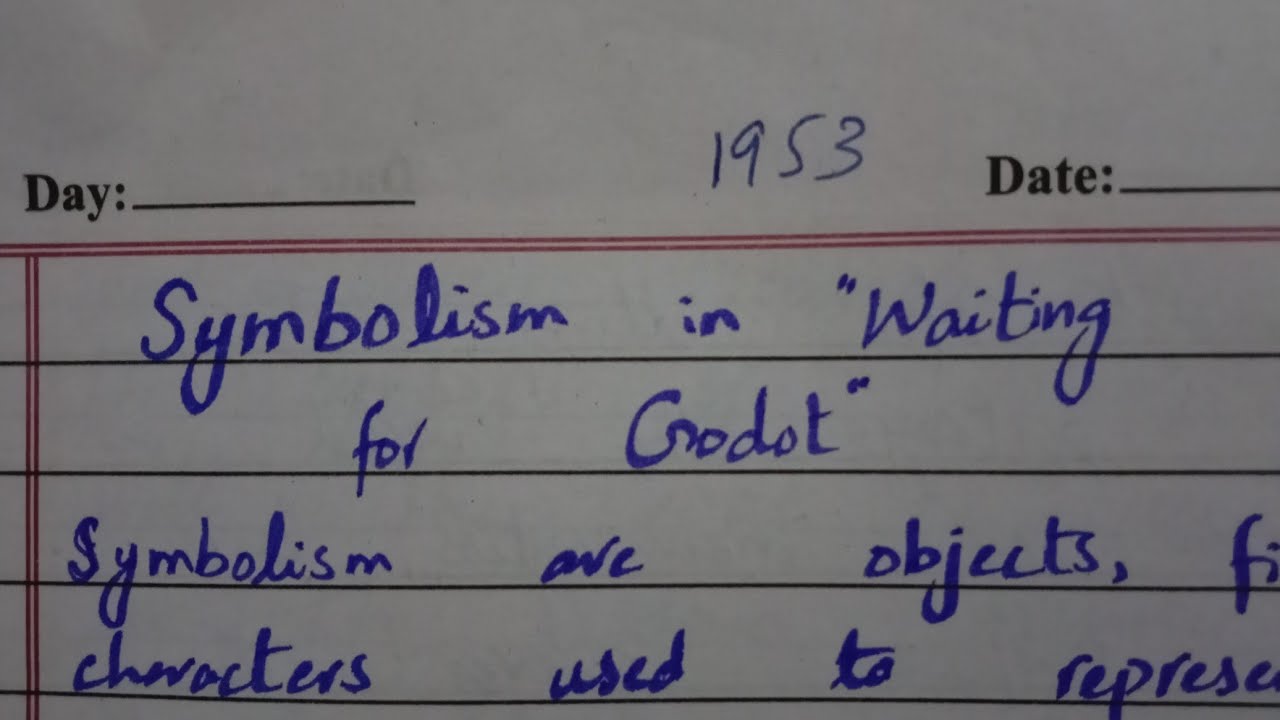 1953
Day: Date:
Symbolism in "Waiting
for Godot"
Symbolism are objects, fi
characters used to represe